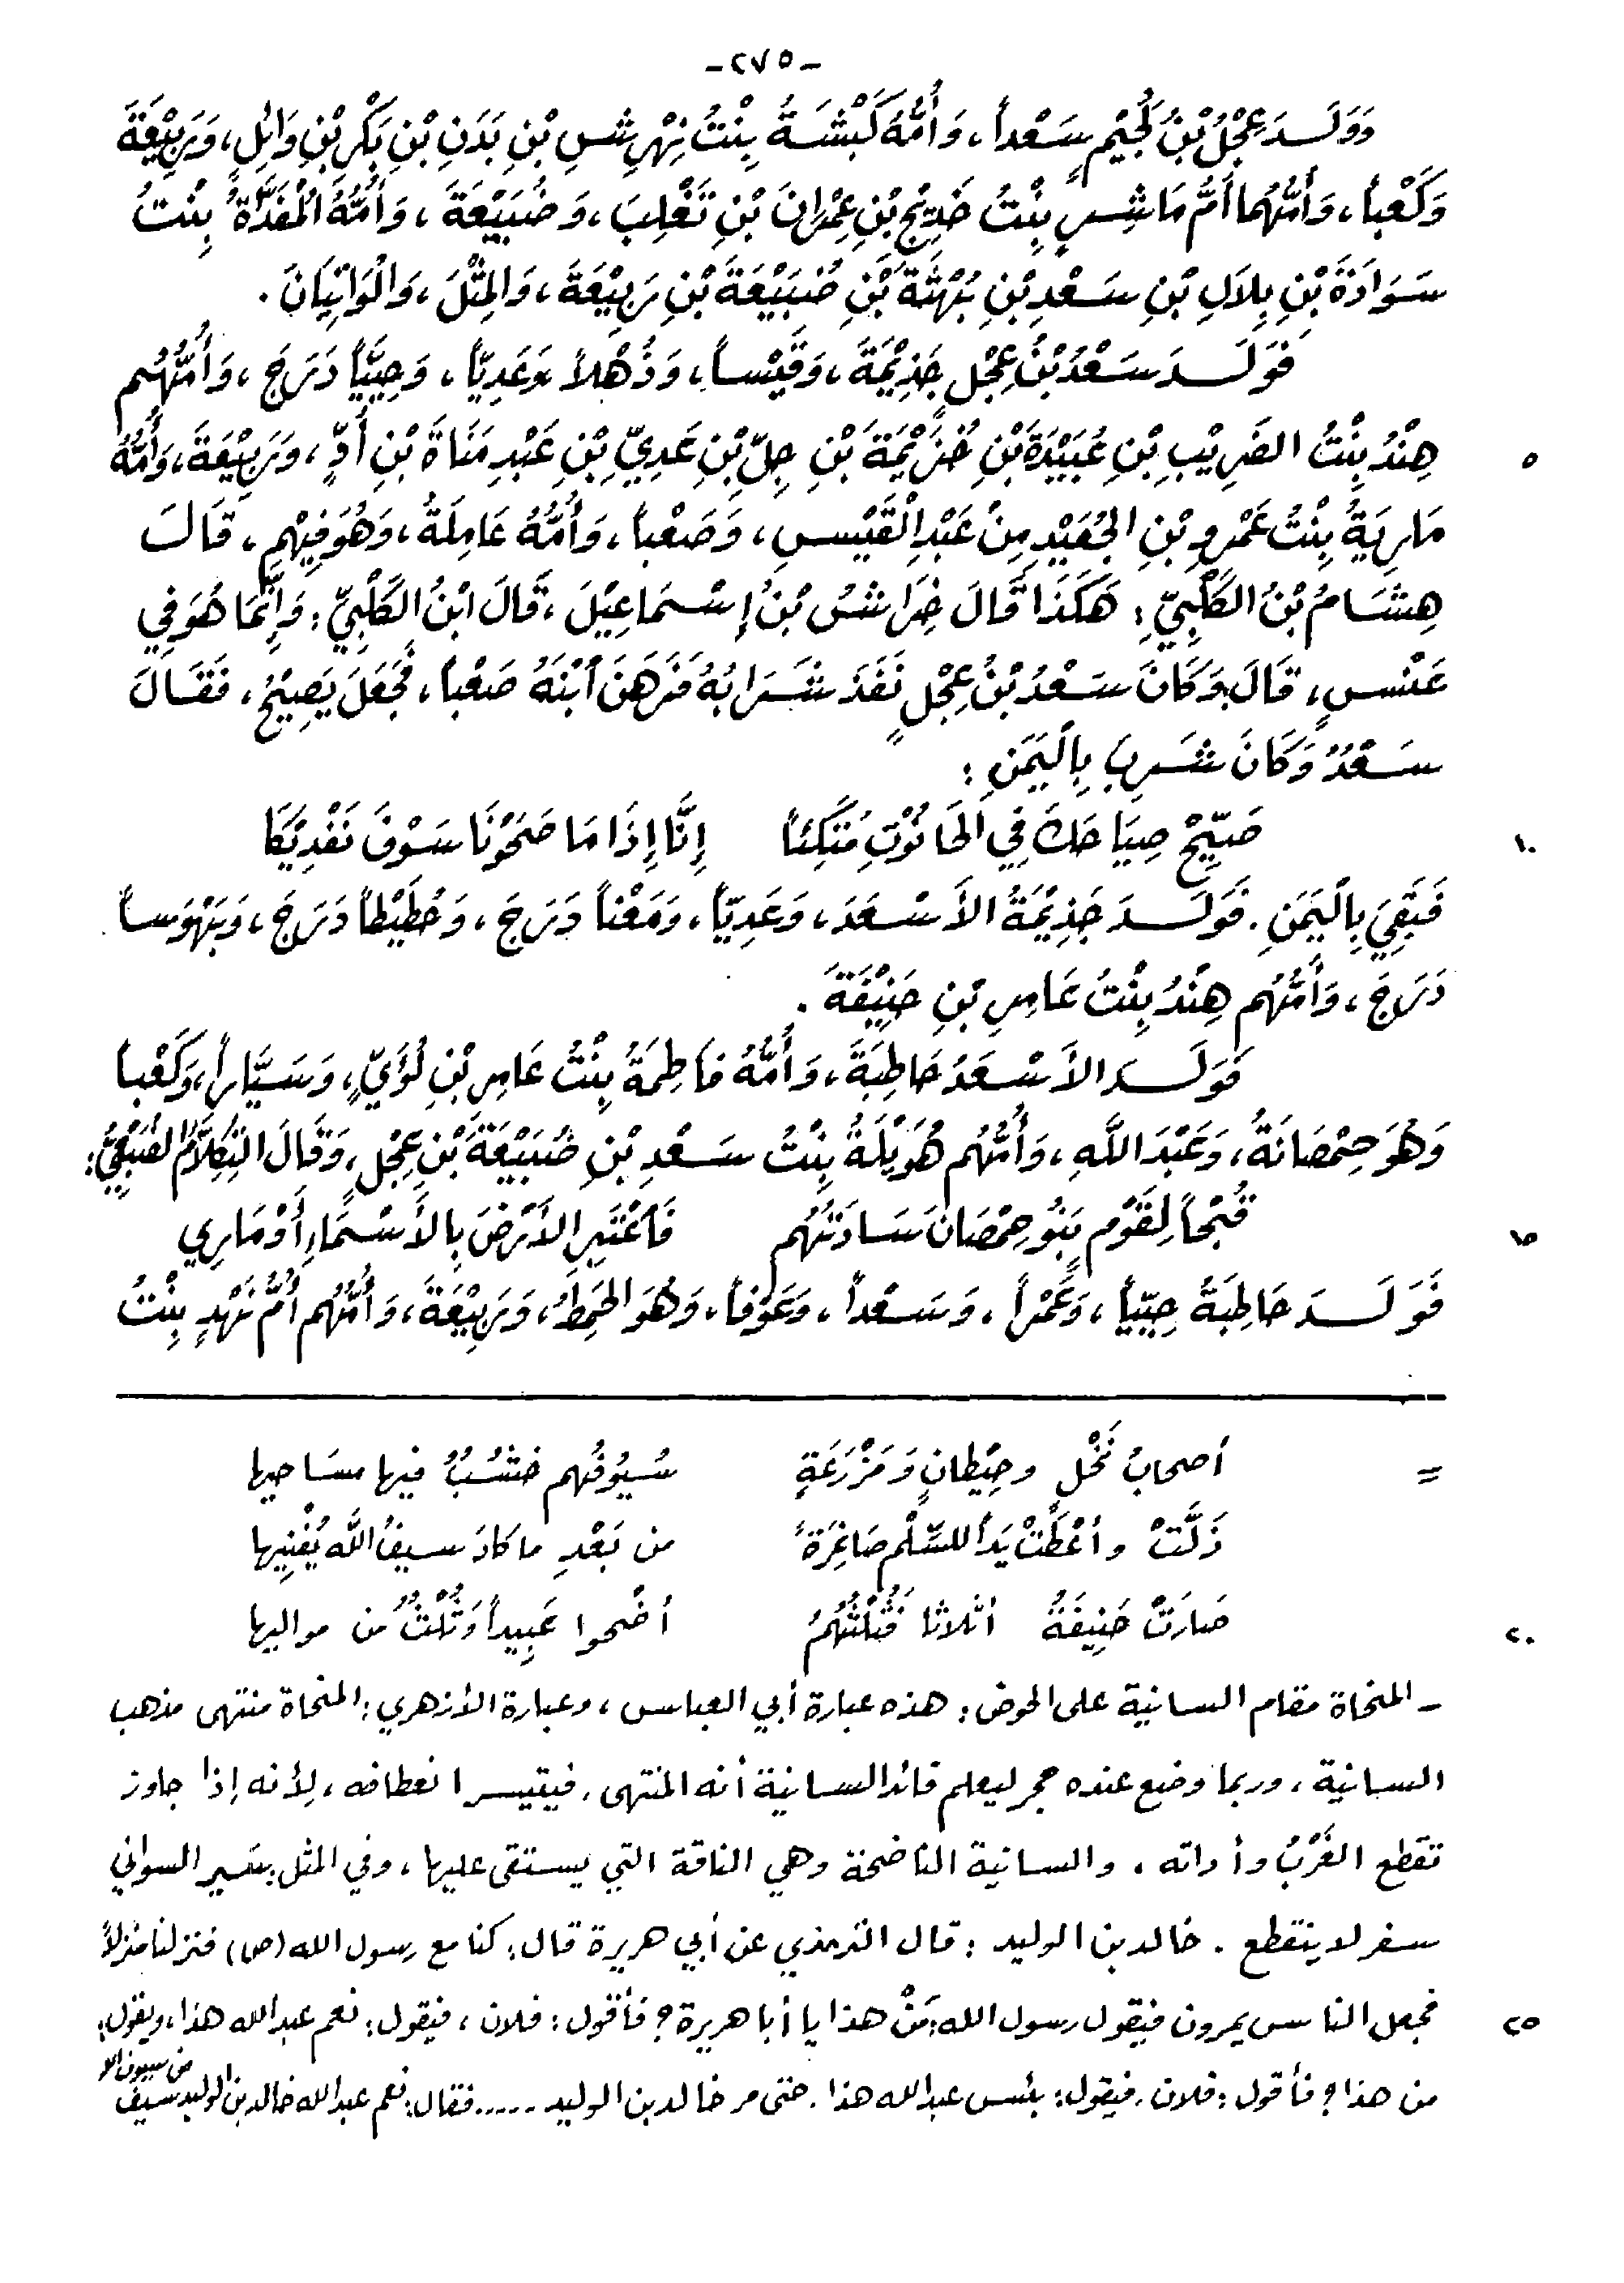 -٢٧٥-
وَوَلَدَ عِجْلُ بْنُ لُجَيْمٍ سَعْداً، وَأُمُّهُ كَبْشَةُ بِنْتُ نِهْرِشِ بْنِ بَدَنِ بْنِ بَكْرِ بْنِ وَائِلٍ، وَرَبِيْعَةَ
وَكَعْباً، وَأُمُّهُما أُمُّ مَاشِسٍ بِنْتُ خَدِيْجِ بْنِ عِمْرَانَ بْنِ تَغْلِبَ، وَضُبَيْعَةَ، وَأُمُّهُ الْمُفَدَّاةُ بِنْتُ
سَوَادَةَ بْنِ بِلَالِ بْنِ سَعْدِ بْنِ بُهْثَةَ بْنِ ضُبَيْعَةَ بْنِ رَبِيْعَةَ، وَالمِثْلَ، وَالْوَاثِيَانَ.
فَوَلَدَ سَعْدُ بْنُ عِجْلٍ جَذِيْمَةَ، وَقَيْساً، وَذُهْلاً وَعَدِيّاً، وَحِيَيّاً دَرَجَ، وَأُمُّهُم
٥ هِنْدُ بِنْتُ الضَرِيْبِ بْنِ عُبَيْدَةَ بْنِ خُزَيْمَةَ بْنِ جِلِّ بْنِ عَدِيِّ بْنِ عَبْدِ مَنَاةَ بْنِ أُدٍّ، وَرَبِيْعَةَ، وَأُمُّهُ
مَارِيَةُ بِنْتُ عَمْرِو بْنِ الجُعَيْدِ مِنْ عَبْدِ الْقَيْسِ، وَصَعْباً، وَأُمُّهُ عَامِلَةُ، وَهُوَ فِيْهِم، قَالَ
هِشَامُ بْنُ الكَلْبِيِّ: هَكَذَا قَالَ خِرَاشُ بْنُ إِسْمَاعِيْلَ، قَالَ ابْنُ الكَلْبِيِّ: وَإِنَّمَا هُوَ فِي
عَنْسٍ، قَالَ وَكَانَ سَعْدُ بْنُ عِجْلٍ نَفَدَ شَرَابُهُ فَرَهَنَ ابْنَهُ صَعْباً، فَجَعَلَ يَصِيْحُ، فَقَالَ
سَعْدٌ وَكَانَ شَرِبَ بِالْيَمَنِ:
١٠ صَيِّحْ صِيَاحَكَ فِي الحَانُوْتِ مُتَّكِئاً إِنَّا إِذَا مَا صَحَوْنَا سَوْفَ نَفْدِيْكَا
فَبَقِيَ بِالْيَمَنِ. فَوَلَدَ جَذِيْمَةُ الأَسْعَدَ، وَعَدِيّاً، وَمَعْناً دَرَجَ، وَحُطَيْطاً دَرَجَ، وَبَهْوَساً
دَرَجَ، وَأُمُّهُم هِنْدُ بِنْتُ عَامِرِ بْنِ حَنِيْفَةَ.
فَوَلَدَ الأَسْعَدُ حَاطِبَةَ، وَأُمُّهُ فَاطِمَةُ بِنْتُ عَامِرِ بْنِ لُؤَيٍّ، وَسَيَّاراً، وَكَعْباً
وَهُوَ حِمْصَانَةُ، وَعَبْدَ اللَّهِ، وَأُمُّهُم هُوَيْلَةُ بِنْتُ سَعْدِ بْنِ ضُبَيْعَةَ بْنِ عِجْلٍ، وَقَالَ التِّكِلَّامُ الضُبَعِيُّ:
١٥ قُبْحاً لِقَوْمٍ بَنُو حِمْصَانَ سَادَتُهُم فَاعْتَبِرِ الأَرْضَ بِالأَسْمَاءِ أَوْ مَارِي
فَوَلَدَ حَاطِبَةُ حِيَيّاً، وَعَمْراً، وَسَعْداً، وَعَوْفاً، وَهُوَ الخَمِطُ، وَرَبِيْعَةَ، وَأُمُّهُم أُمُّ نَهْدٍ بِنْتُ
= أصحابُ نَخْلٍ وحِيْطانٍ وَمَزْرَعَةٍ سُيُوفُهم خشُبٌ فيها مسَاحيها
ذَلَّتْ وأعْطَتْ يَداً للسِّلْم صَاغِرَةً من بَعْدِ ما كادَ سيفُ اللَّه يُفْنِيها
٢٠ صَارَتْ حَنِيفَةُ أثلاثا فَثُلْثُهُمُ أضْحوا عَبِيداً وَثُلْثٌ من مواليها
- المنحاة مقام السانية على الحوض: هذه عبارة أبي العباس، وعبارة الأزهري: المنحاة منتهى مذهب
السانية، وربما وضع عنده حجر ليعلم قائد السانية أنه المنتهى. فيتيسر انعطافه، لِأنه إذا جاوز
تقطع الغَرْبُ وأداته، والسانية الناضحة وهي الناقة التي يستقى عليها، وفي المثل: سَير السواني
سفر لا ينقطع. خالد بن الوليد: قال الترمذي عن أبي هريرة قال: كنا مع رسول الله (ص) فنزلنا منزلاً
٢٥ فجعل الناس يمرون فيقول رسول الله: مَنْ هذا يا أبا هريرة؟ فأقول: فلان، فيقول: نعم عبد الله هذا، ويقول:
من هذا؟ فأقول: فلان. فيقول: بئس عبد الله هذا. حتى مر خالد بن الوليد ..... فقال: نعم عبد الله خالد بن الوليد سيف من سيوف الله